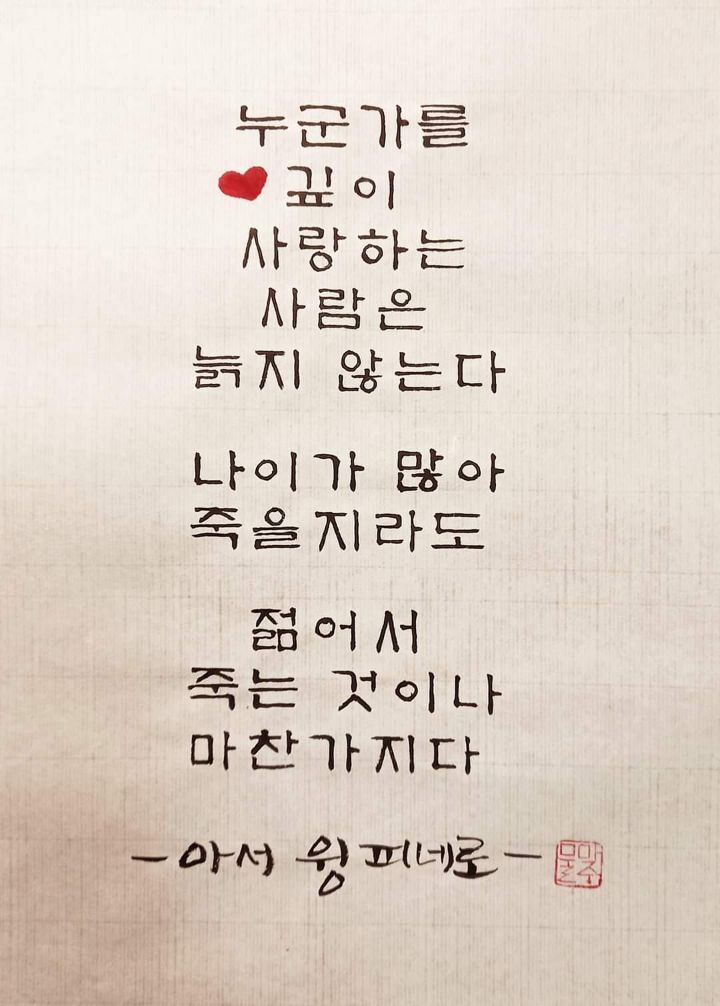 누군가를
깊이
사랑하는
사람은
늙지 않는다
나이가 많아
죽을지라도
젊어서
죽는 것이나
마찬가지다
-아서 윙 피네로-